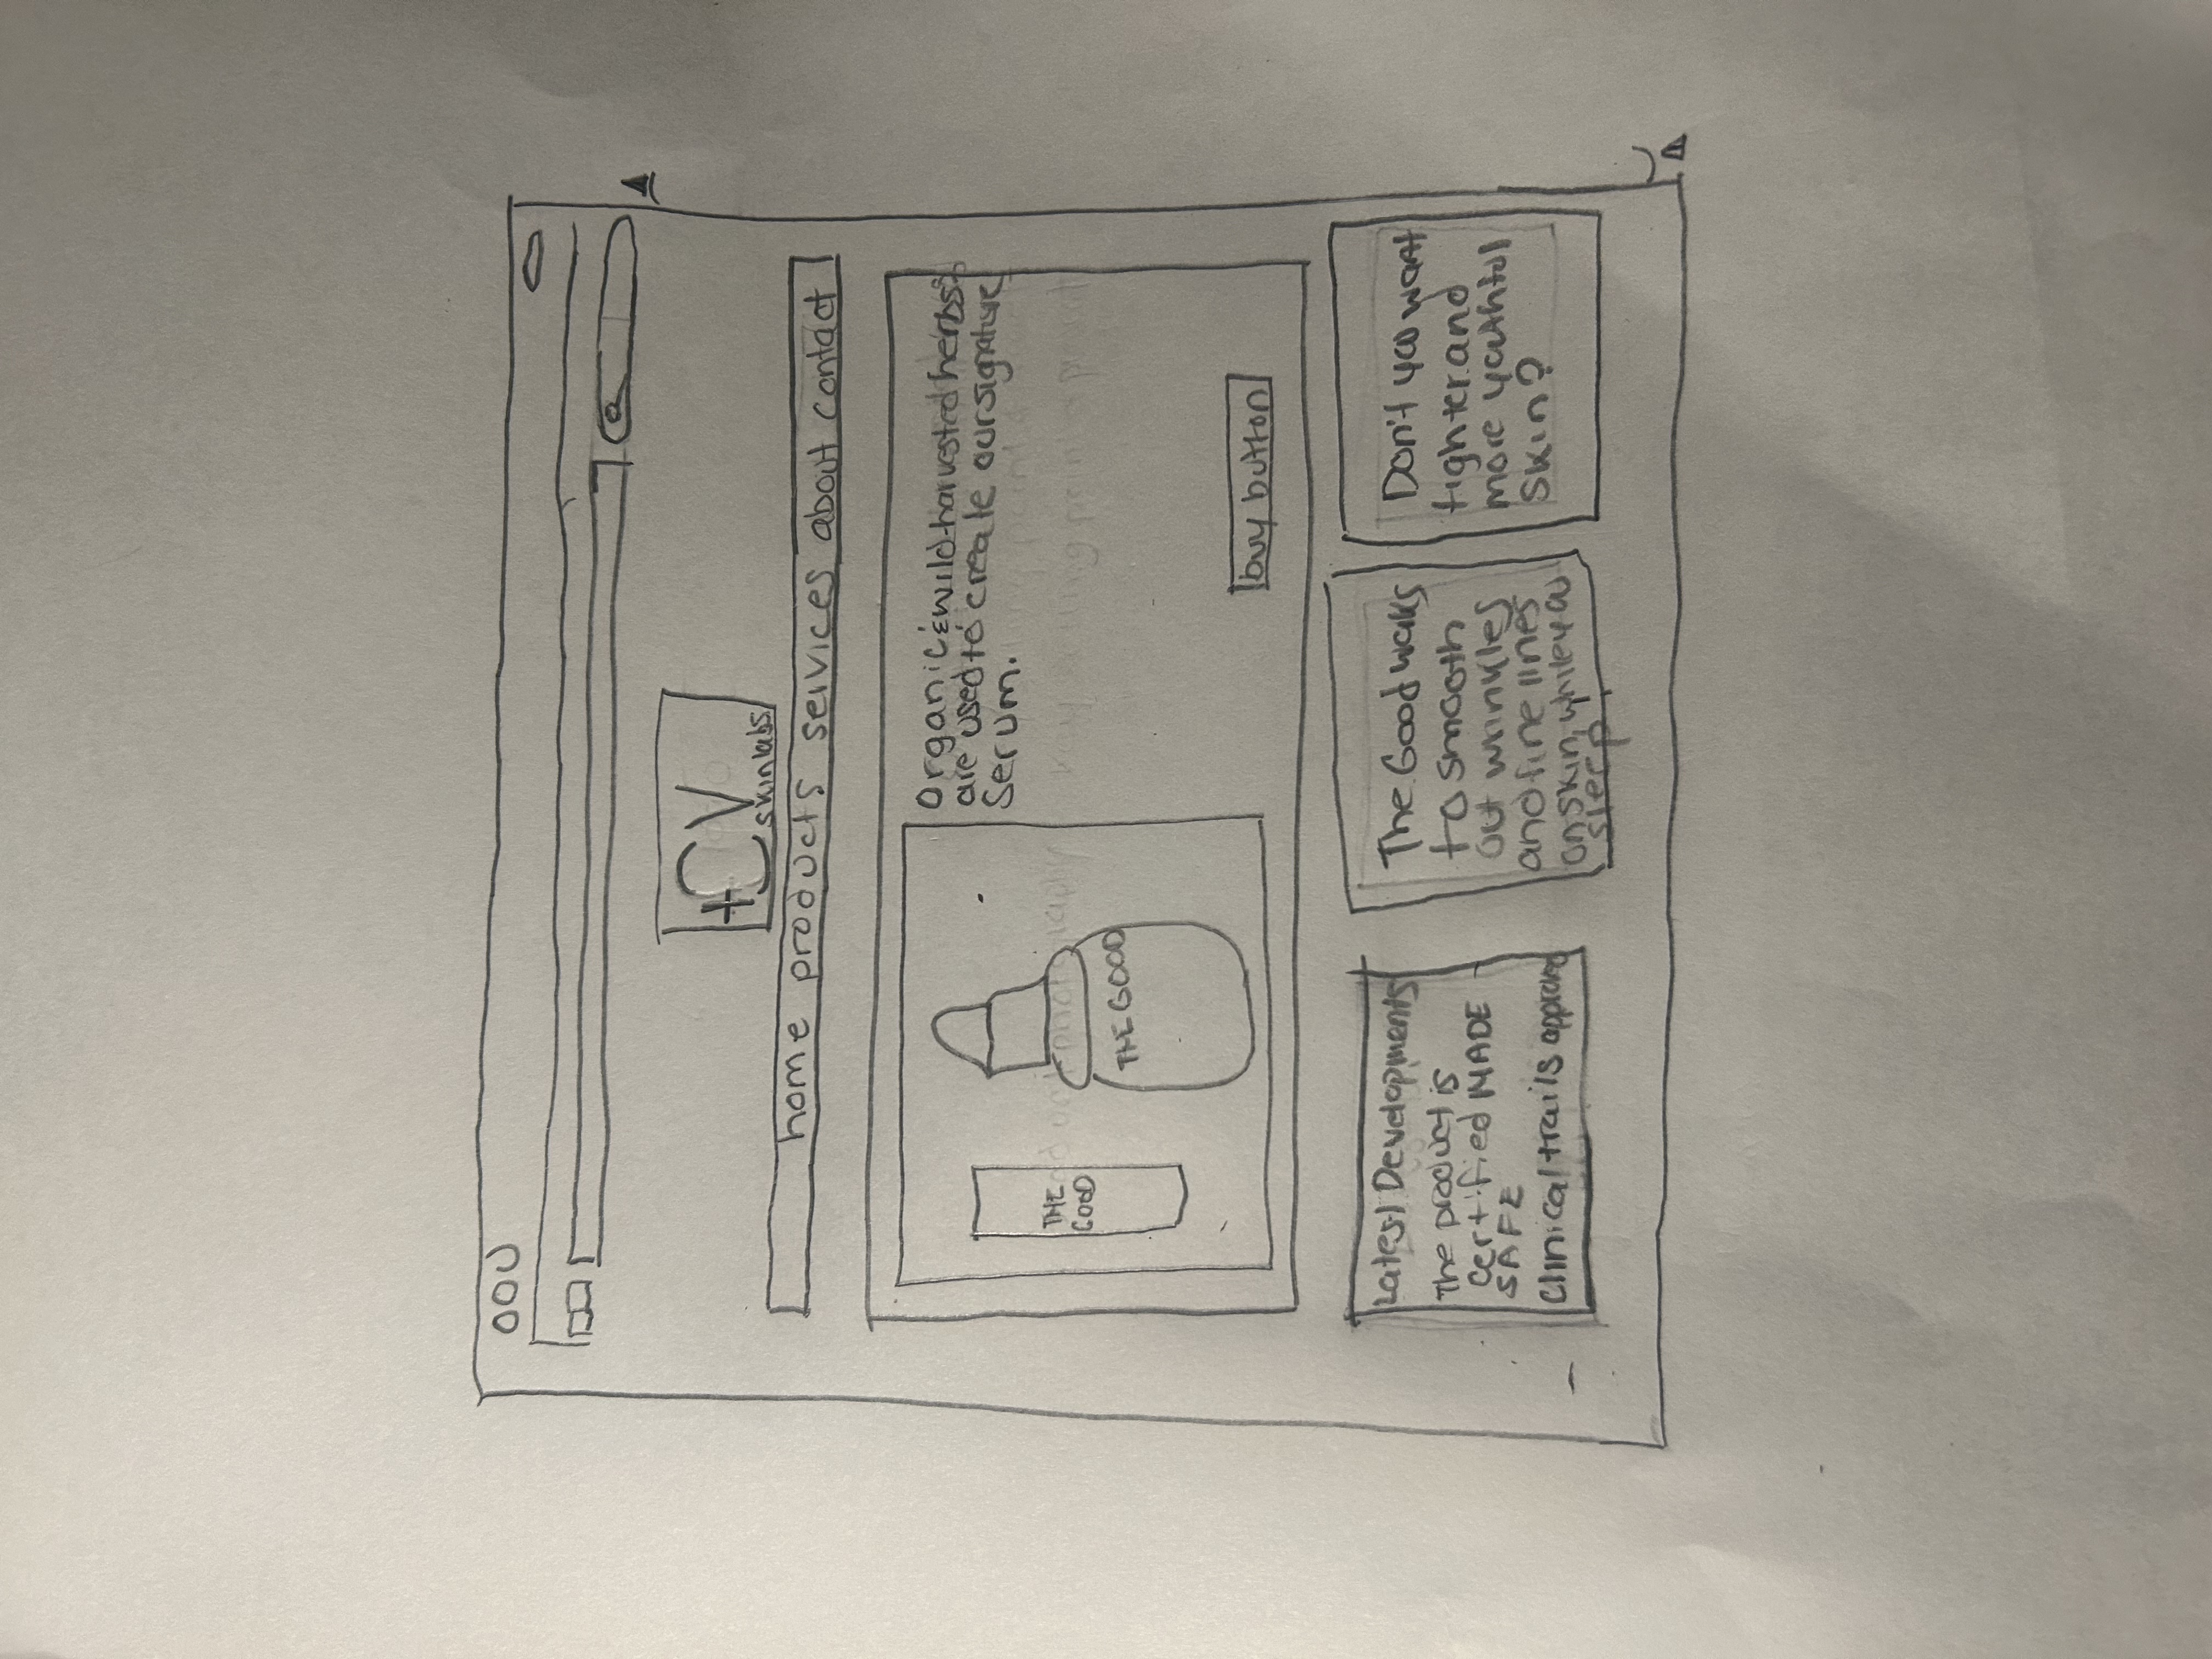 +CV
skinlabs
home products services about contact
Organic & wild-harvested herbs
are used to create our signature
serum.
THE
GOOD
THE GOOD
buy button
Latest Developments
The product is
certified MADE
SAFE
Clinical trails approved
The Good works
to smooth
out wrinkles
and fine lines
on skin, while you
sleep.
Don't you want
tighter and
more youthful
skin?